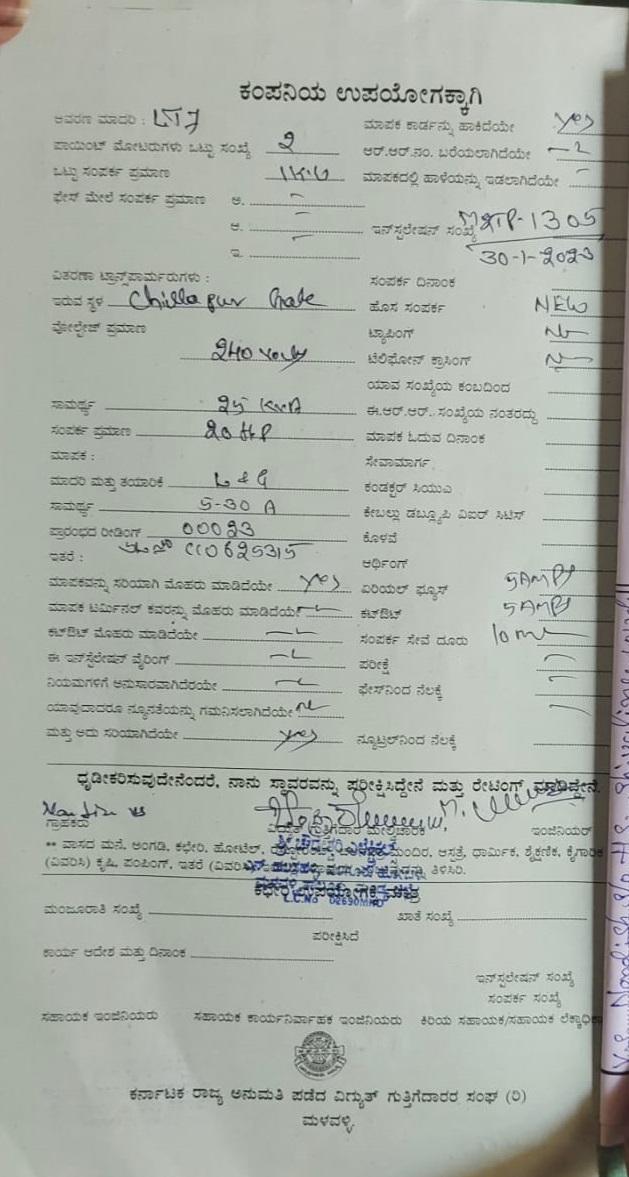 ಕಂಪನಿಯ ಉಪಯೋಗಕ್ಕಾಗಿ
ಆವರಣ ಮಾದರಿ : ಮಾಪಕ ಕಾರ್ಡನ್ನು ಹಾಕಿದೆಯೇ yes
ಪಾಯಿಂಟ್ ಮೋಟರುಗಳು ಒಟ್ಟು ಸಂಖ್ಯೆ 2 ಆರ್.ಆರ್.ನಂ. ಬರೆಯಲಾಗಿದೆಯೇ
ಒಟ್ಟು ಸಂಪರ್ಕ ಪ್ರಮಾಣ ಮಾಪಕದಲ್ಲಿ ಹಾಳೆಯನ್ನು ಇಡಲಾಗಿದೆಯೇ
ಫೇಸ್ ಮೇಲೆ ಸಂಪರ್ಕ ಪ್ರಮಾಣ ಅ.
ಆ. ಇನ್‌ಸ್ಟಲೇಷನ್ ಸಂಖ್ಯೆ
ಇ. 30-1-2023
ವಿತರಣಾ ಟ್ರಾನ್ಸ್‌ಪಾರ್ಮರುಗಳು : ಸಂಪರ್ಕ ದಿನಾಂಕ
ಇರುವ ಸ್ಥಳ Chillapur Gate ಹೊಸ ಸಂಪರ್ಕ NEW
ವೋಲ್ಟೇಜ್ ಪ್ರಮಾಣ ಟ್ಯಾಪಿಂಗ್
240 volts ಟೆಲಿಫೋನ್ ಕ್ರಾಸಿಂಗ್
ಯಾವ ಸಂಖ್ಯೆಯ ಕಂಬದಿಂದ
ಸಾಮರ್ಥ್ಯ 25 KVA ಈ.ಆರ್.ಆರ್. ಸಂಖ್ಯೆಯ ನಂತರದ್ದು
ಸಂಪರ್ಕ ಪ್ರಮಾಣ 20 HP ಮಾಪಕ ಓದುವ ದಿನಾಂಕ
ಮಾಪಕ : ಸೇವಾಮಾರ್ಗ
ಮಾದರಿ ಮತ್ತು ತಯಾರಿಕೆ L & G ಕಂಡಕ್ಟರ್ ಸಿಯುಎ
ಸಾಮರ್ಥ್ಯ 5-30 A ಕೇಬಲ್ಲು ಡಬ್ಲ್ಯೂಪಿ ವಿಐಆರ್ ಸಿಟಿಸ್
ಪ್ರಾರಂಭದ ರೀಡಿಂಗ್ 00023 ಕೊಳವೆ
ಇತರೆ : C10625315 ಆರ್ಥಿಂಗ್
ಮಾಪಕವನ್ನು ಸರಿಯಾಗಿ ಮೊಹರು ಮಾಡಿದೆಯೇ yes ಏರಿಯಲ್ ಫ್ಯೂಸ್ 5AMPS
ಮಾಪಕ ಟರ್ಮಿನಲ್ ಕವರನ್ನು ಮೊಹರು ಮಾಡಿದೆಯೇ ಕಟ್‌ಔಟ್ 5AMPS
ಕಟ್‌ಔಟ್ ಮೊಹರು ಮಾಡಿದೆಯೇ ಸಂಪರ್ಕ ಸೇವೆ ದೂರು
ಈ ಇನ್‌ಸ್ಟಲೇಷನ್ ವೈರಿಂಗ್ ಪರೀಕ್ಷೆ
ನಿಯಮಗಳಿಗೆ ಅನುಸಾರವಾಗಿದೆಯೇ ಫೇಸ್‌ನಿಂದ ನೆಲಕ್ಕೆ
ಯಾವುದಾದರೂ ನ್ಯೂನತೆಯನ್ನು ಗಮನಿಸಲಾಗಿದೆಯೇ
ಮತ್ತು ಅದು ಸರಿಯಾಗಿದೆಯೇ yes ನ್ಯೂಟ್ರಲ್‌ನಿಂದ ನೆಲಕ್ಕೆ
ಧೃಡೀಕರಿಸುವುದೇನೆಂದರೆ, ನಾನು ಸ್ಥಾವರವನ್ನು ಪರೀಕ್ಷಿಸಿದ್ದೇನೆ ಮತ್ತು ರೇಟಿಂಗ್ ಮಾಡಿದ್ದೇನೆ.
ಗ್ರಾಹಕರು ವಿದ್ಯುತ್ ಗುತ್ತಿಗೆದಾರ ಮೇಲ್ವಿಚಾರಕ ಇಂಜಿನಿಯರ್
** ವಾಸದ ಮನೆ, ಅಂಗಡಿ, ಕಛೇರಿ, ಹೋಟೆಲ್, ಮಂದಿರ, ಆಸ್ಪತ್ರೆ, ಧಾರ್ಮಿಕ, ಶೈಕ್ಷಣಿಕ, ಕೈಗಾರಿಕ
(ವಿವರಿಸಿ) ಕೃಷಿ, ಪಂಪಿಂಗ್, ಇತರೆ ತಿಳಿಸಿರಿ.
ಕಛೇರಿ ಉಪಯೋಗಕ್ಕೆ ಮಾತ್ರ
L.C.No 02690MND
ಮಂಜೂರಾತಿ ಸಂಖ್ಯೆ ಖಾತೆ ಸಂಖ್ಯೆ
ಪರೀಕ್ಷಿಸಿದೆ
ಕಾರ್ಯ ಆದೇಶ ಮತ್ತು ದಿನಾಂಕ
ಇನ್‌ಸ್ಟಲೇಷನ್ ಸಂಖ್ಯೆ
ಸಂಪರ್ಕ ಸಂಖ್ಯೆ
ಸಹಾಯಕ ಇಂಜಿನಿಯರು ಸಹಾಯಕ ಕಾರ್ಯನಿರ್ವಾಹಕ ಇಂಜಿನಿಯರು ಕಿರಿಯ ಸಹಾಯಕ/ಸಹಾಯಕ ಲೆಕ್ಕಾಧಿಕಾ
ಕರ್ನಾಟಕ ರಾಜ್ಯ ಅನುಮತಿ ಪಡೆದ ವಿದ್ಯುತ್ ಗುತ್ತಿಗೆದಾರರ ಸಂಘ (ರಿ)
ಮಳವಳ್ಳಿ